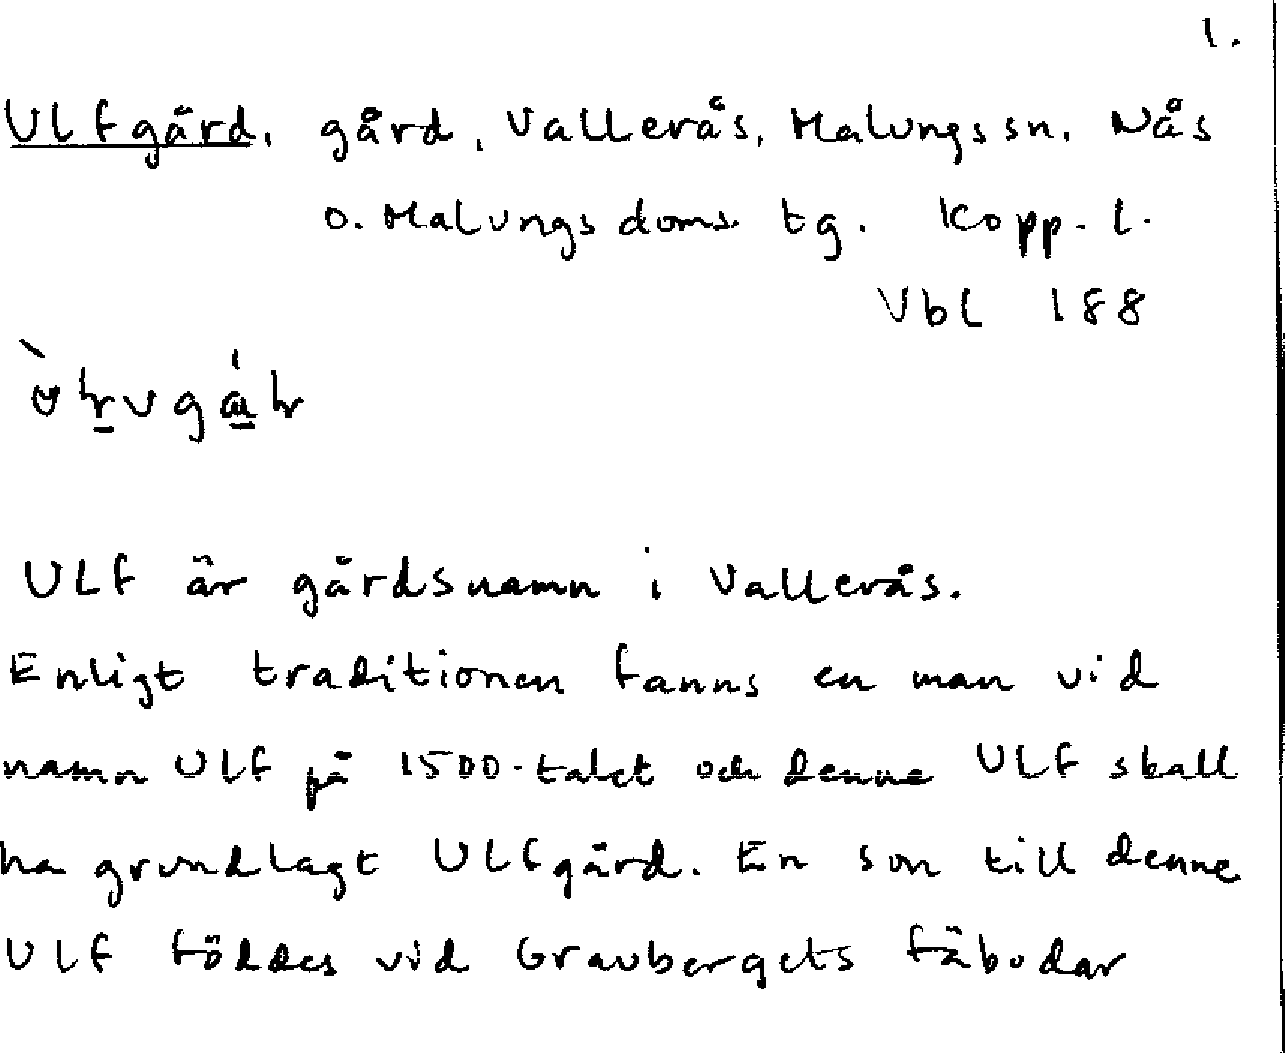 1.
Ulfgård, gård, Vallerås, Malungs sn, Nås
o. Malungs doms. tg. Kopp. l.
Vbl 188
Ulf är gårdsnamn i Vallerås.
Enligt traditionen fanns en man vid
namn Ulf på 1500-talet och denne Ulf skall
ha grundlagt Ulfgård. En son till denne
Ulf föddes vid Gravbergets fäbodar